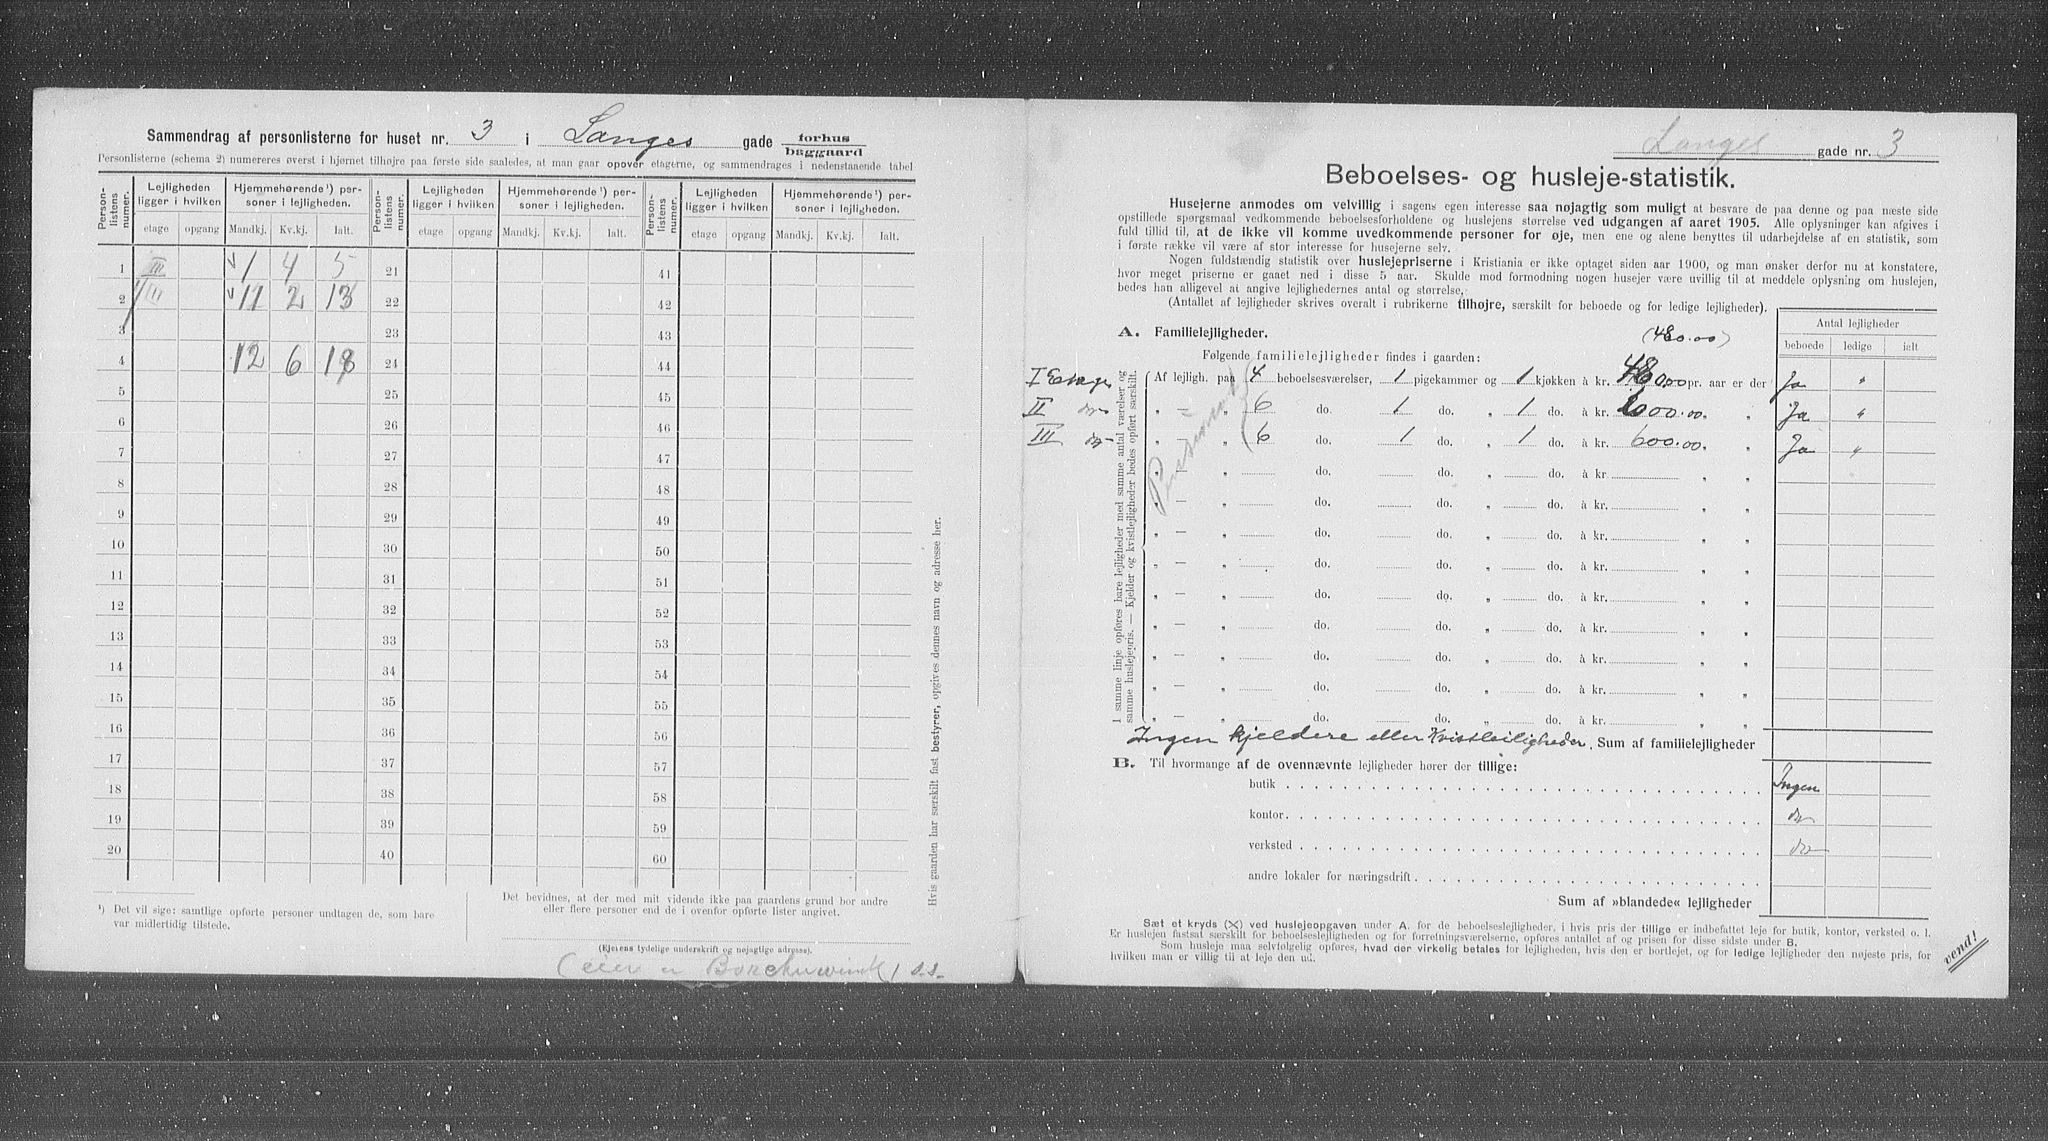 Sammendrag af personlisterne for huset nr. 3 i Langes gade forhus baggaard
Personlisterne (schema 2) numereres øverst i hjørnet tilhøjre paa første side saaledes, at man gaar opover etagerne, og sammendrages i nedenstaaende tabel
Person-listens numer. Lejligheden ligger i hvilken Hjemmehørende ¹) personer i lejligheden. Person-listens numer. Lejligheden ligger i hvilken Hjemmehørende ¹) personer i lejligheden. Person-listens numer. Lejligheden ligger i hvilken Hjemmehørende ¹) personer i lejligheden.
etage opgang Mandkj. Kv.kj. Ialt. etage opgang Mandkj. Kv.kj. Ialt. etage opgang Mandkj. Kv.kj. Ialt.
1 III 1 4 5 21 41
2 III 11 2 13 22 42
3 23 43
4 12 6 18 24 44
5 25 45
6 26 46
7 27 47
8 28 48
9 29 49
10 30 50
11 31 51
12 32 52
13 33 53
14 34 54
15 35 55
16 36 56
17 37 57
18 38 58
19 39 59
20 40 60
¹) Det vil sige: samtlige opførte personer undtagen de, som bare
var midlertidig tilstede.
Det bevidnes, at der med mit vidende ikke paa gaardens grund bor andre
eller flere personer end de i ovenfor opførte lister angivet.
(Ejerens tydelige underskrift og nøjagtige adresse).
Hvis gaarden har særskilt fast bestyrer, opgives dennes navn og adresse her.
Langes gade nr. 3
Beboelses- og husleje-statistik.
Husejerne anmodes om velvillig i sagens egen interesse saa nøjagtig som muligt at besvare de paa denne og paa næste side
opstillede spørgsmaal vedkommende beboelsesforholdene og huslejens størrelse ved udgangen af aaret 1905. Alle oplysninger kan afgives i
fuld tillid til, at de ikke vil komme uvedkommende personer for øje, men ene og alene benyttes til udarbejdelse af en statistik, som
i første række vil være af stor interesse for husejerne selv.
Nogen fuldstændig statistik over huslejepriserne i Kristiania er ikke optaget siden aar 1900, og man ønsker derfor nu at konstatere,
hvor meget priserne er gaaet ned i disse 5 aar. Skulde mod formodning nogen husejer være uvillig til at meddele oplysning om huslejen,
bedes han alligevel at angive lejlighedernes antal og størrelse.
(Antallet af lejligheder skrives overalt i rubrikerne tilhøjre, særskilt for beboede og for ledige lejligheder).
Antal lejligheder
beboede ledige ialt
A. Familielejligheder. (480.00)
Følgende familielejligheder findes i gaarden:
I Etage Af lejligh. paa 4 beboelsesværelser, 1 pigekammer og 1 kjøkken à kr. pr. aar er der Ja "
II do- „ — „ 6 do. 1 do. „ 1 do. à kr. 600.00. „ Ja "
III do- „ — „ 6 do. 1 do. „ 1 do. à kr. 600.00. „ Ja "
„ — „ do. do. „ do. à kr. „ „
„ — „ do. do. „ do. à kr. „ „
„ — „ do. do. „ do. à kr. „ „
„ — „ do. do. „ do. à kr. „ „
„ — „ do. do. „ do. à kr. „ „
„ — „ do. do. „ do. à kr. „ „
„ — „ do. do. „ do. à kr. „ „
„ — „ do. do. „ do. à kr. „ „
„ — „ do. do. „ do. à kr. „ „
I samme linje opføres bare lejligheder med samme antal værelser og
samme huslejepris. — Kjelder og kvistlejligheder bedes opført særskilt.
Ingen kjeldere eller Kvistleiligheder. Sum af familielejligheder
B. Til hvormange af de ovennævnte lejligheder hører der tillige:
butik Ingen
kontor do
verksted do
andre lokaler for næringsdrift
Sum af »blandede« lejligheder
Sæt et kryds (X) ved huslejeopgaven under A. for de beboelseslejligheder, i hvis pris der tillige er indbefattet leje for butik, kontor, verksted o. l.
Er huslejen fastsat særskilt for beboelseslejligheden og for forretningsværelserne, opføres antallet af og prisen for disse sidste under B.
Som husleje maa selvfølgelig opføres, hvad der virkelig betales for lejligheden, hvis den er bortlejet, og for ledige lejligheder den nøjeste pris, for
hvilken man er villig til at leje den ud.
vend!